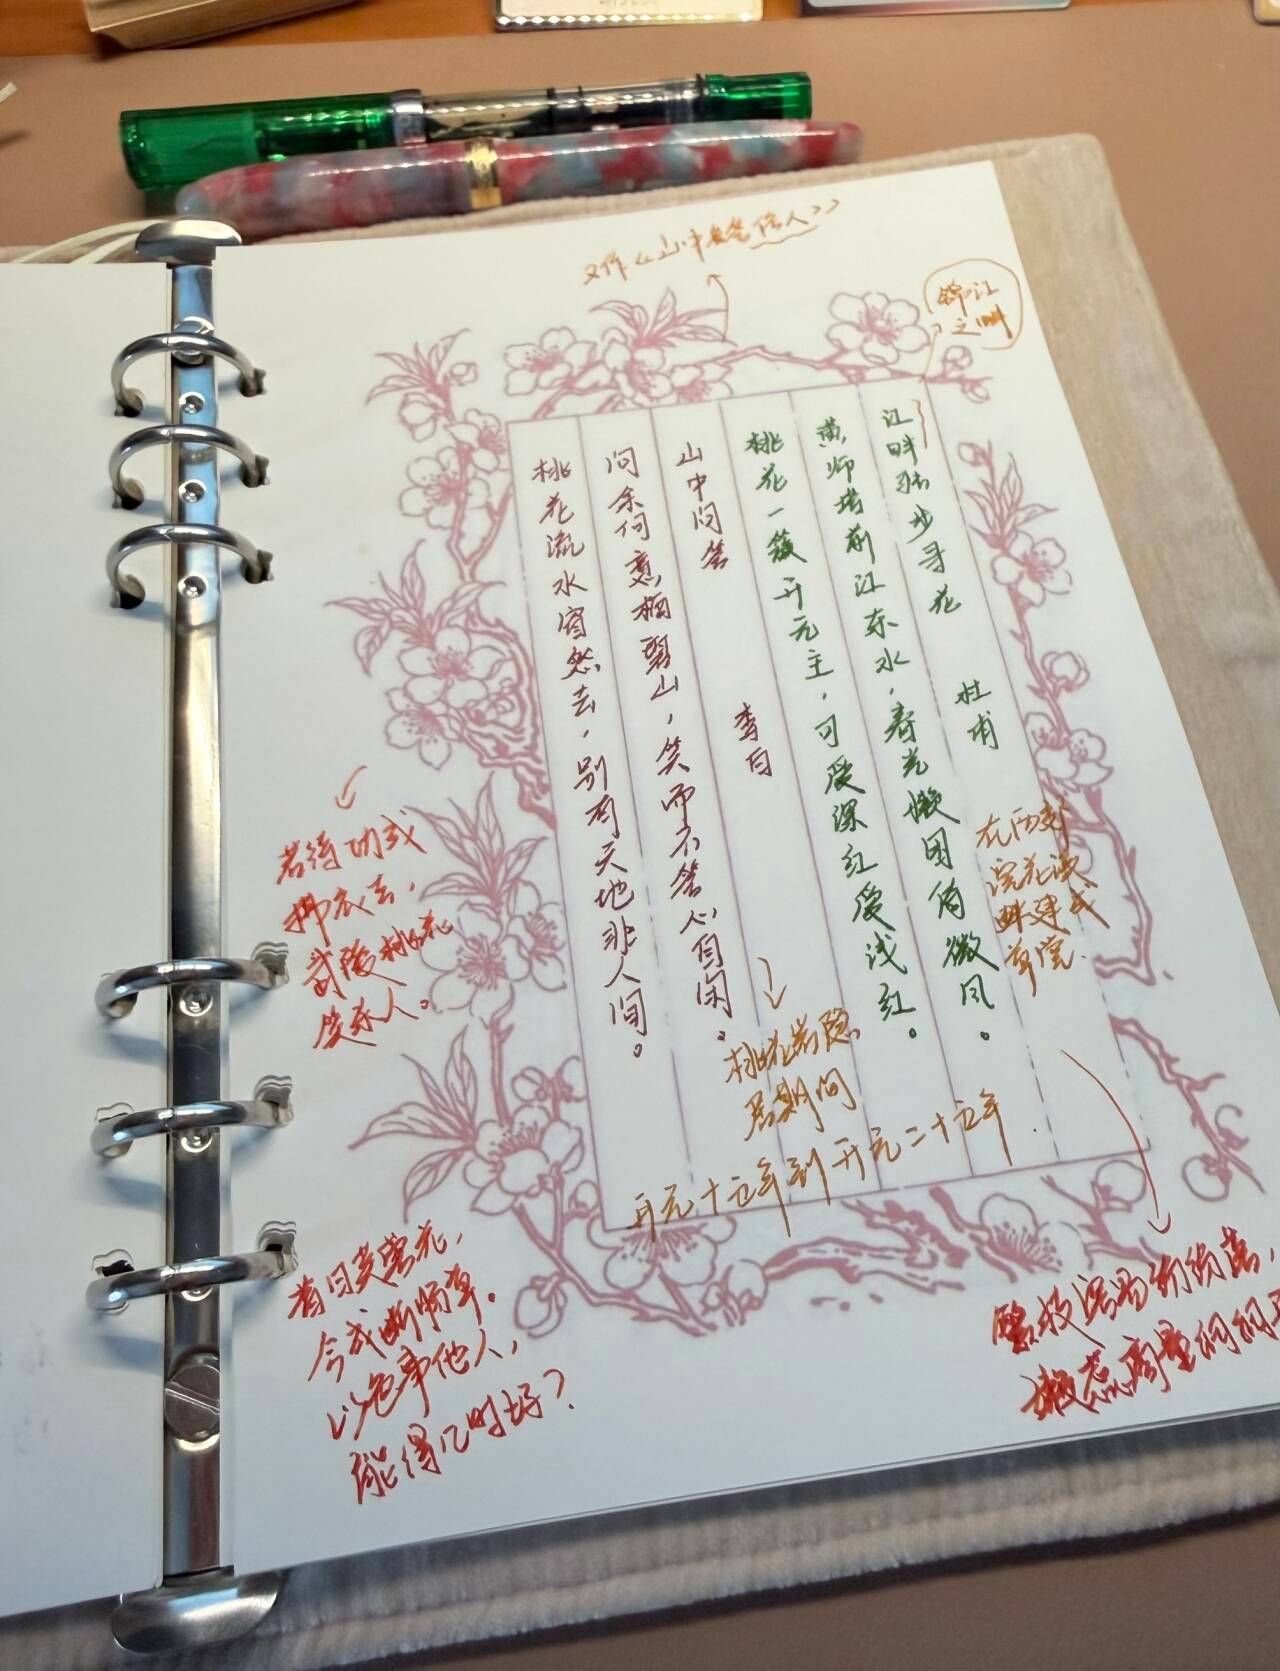 又作《山中答俗人》
锦江
之畔
江畔独步寻花 杜甫
黄师塔前江东水，春光懒困倚微风。
桃花一簇开无主，可爱深红爱浅红。
山中问答 李白
问余何意栖碧山，笑而不答心自闲。
桃花流水窅然去，别有天地非人间。
在成都
浣花溪
畔建成
草堂.
桃花岩隐
居期间
开元十五年到开元二十五年.
若待功成
拂衣去，
武陵桃花
笑杀人。
昔日芙蓉花，
今成断肠草。
以色事他人，
能得几时好？
繁枝容易纷纷落，
嫩蕊商量细细开